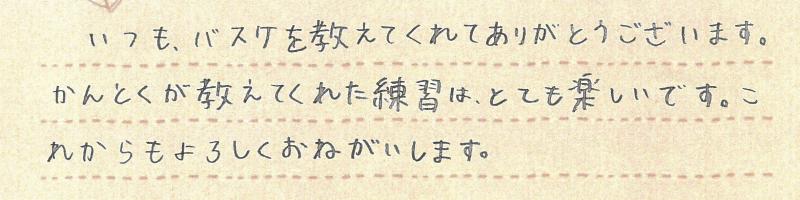 いつも、バスケを教えてくれてありがとうございます。
かんとくが教えてくれた練習は、とても楽しいです。こ
れからもよろしくおねがいします。